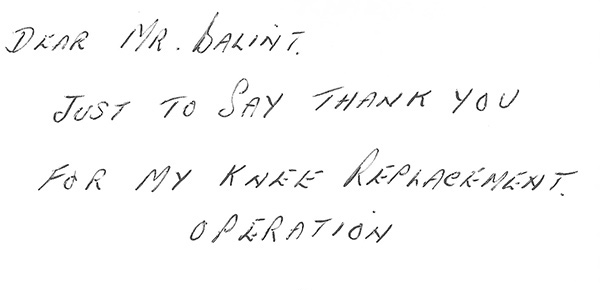 DEAR MR. BALINT.
JUST TO SAY THANK YOU
FOR MY KNEE REPLACEMENT.
OPERATION